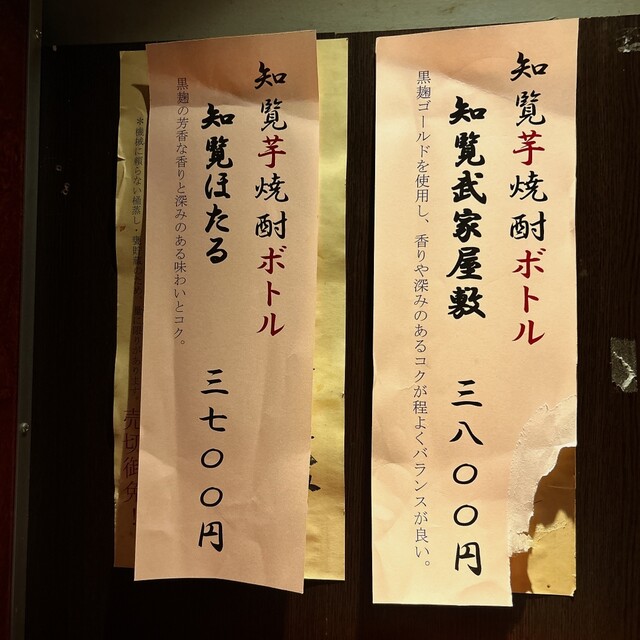 知覧芋焼酎ボトル
知覧武家屋敷 三八〇〇円
黒麹ゴールドを使用し、香りや深みのあるコクが程よくバランスが良い。
知覧芋焼酎ボトル
知覧ほたる 三七〇〇円
黒麹の芳香な香りと深みのある味わいとコク。
＊機械に頼らない桶蒸し・
売切御免！